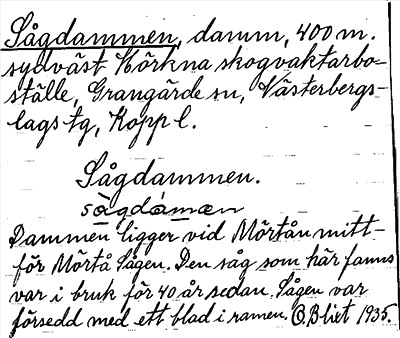 Sågdammen, damm, 400 m.
sydväst Hörkna skogvaktarbo-
ställe, Grangärde sn, Västerbergs-
lags tg, Kopp l.
Sågdammen.
sàgdámæn
Dammen ligger vid Mörtån mitt-
för Mörtå Sågen. Den såg som här fanns
var i bruk för 40 år sedan. Sågen var
försedd med ett blad i ramen. O. Blixt 1935.